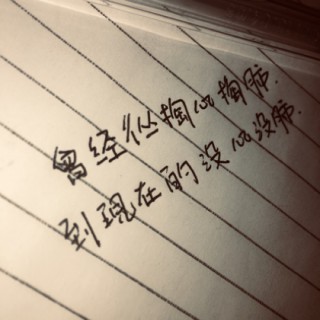 曾经掏心掏肺.
到现在的没心没肺.